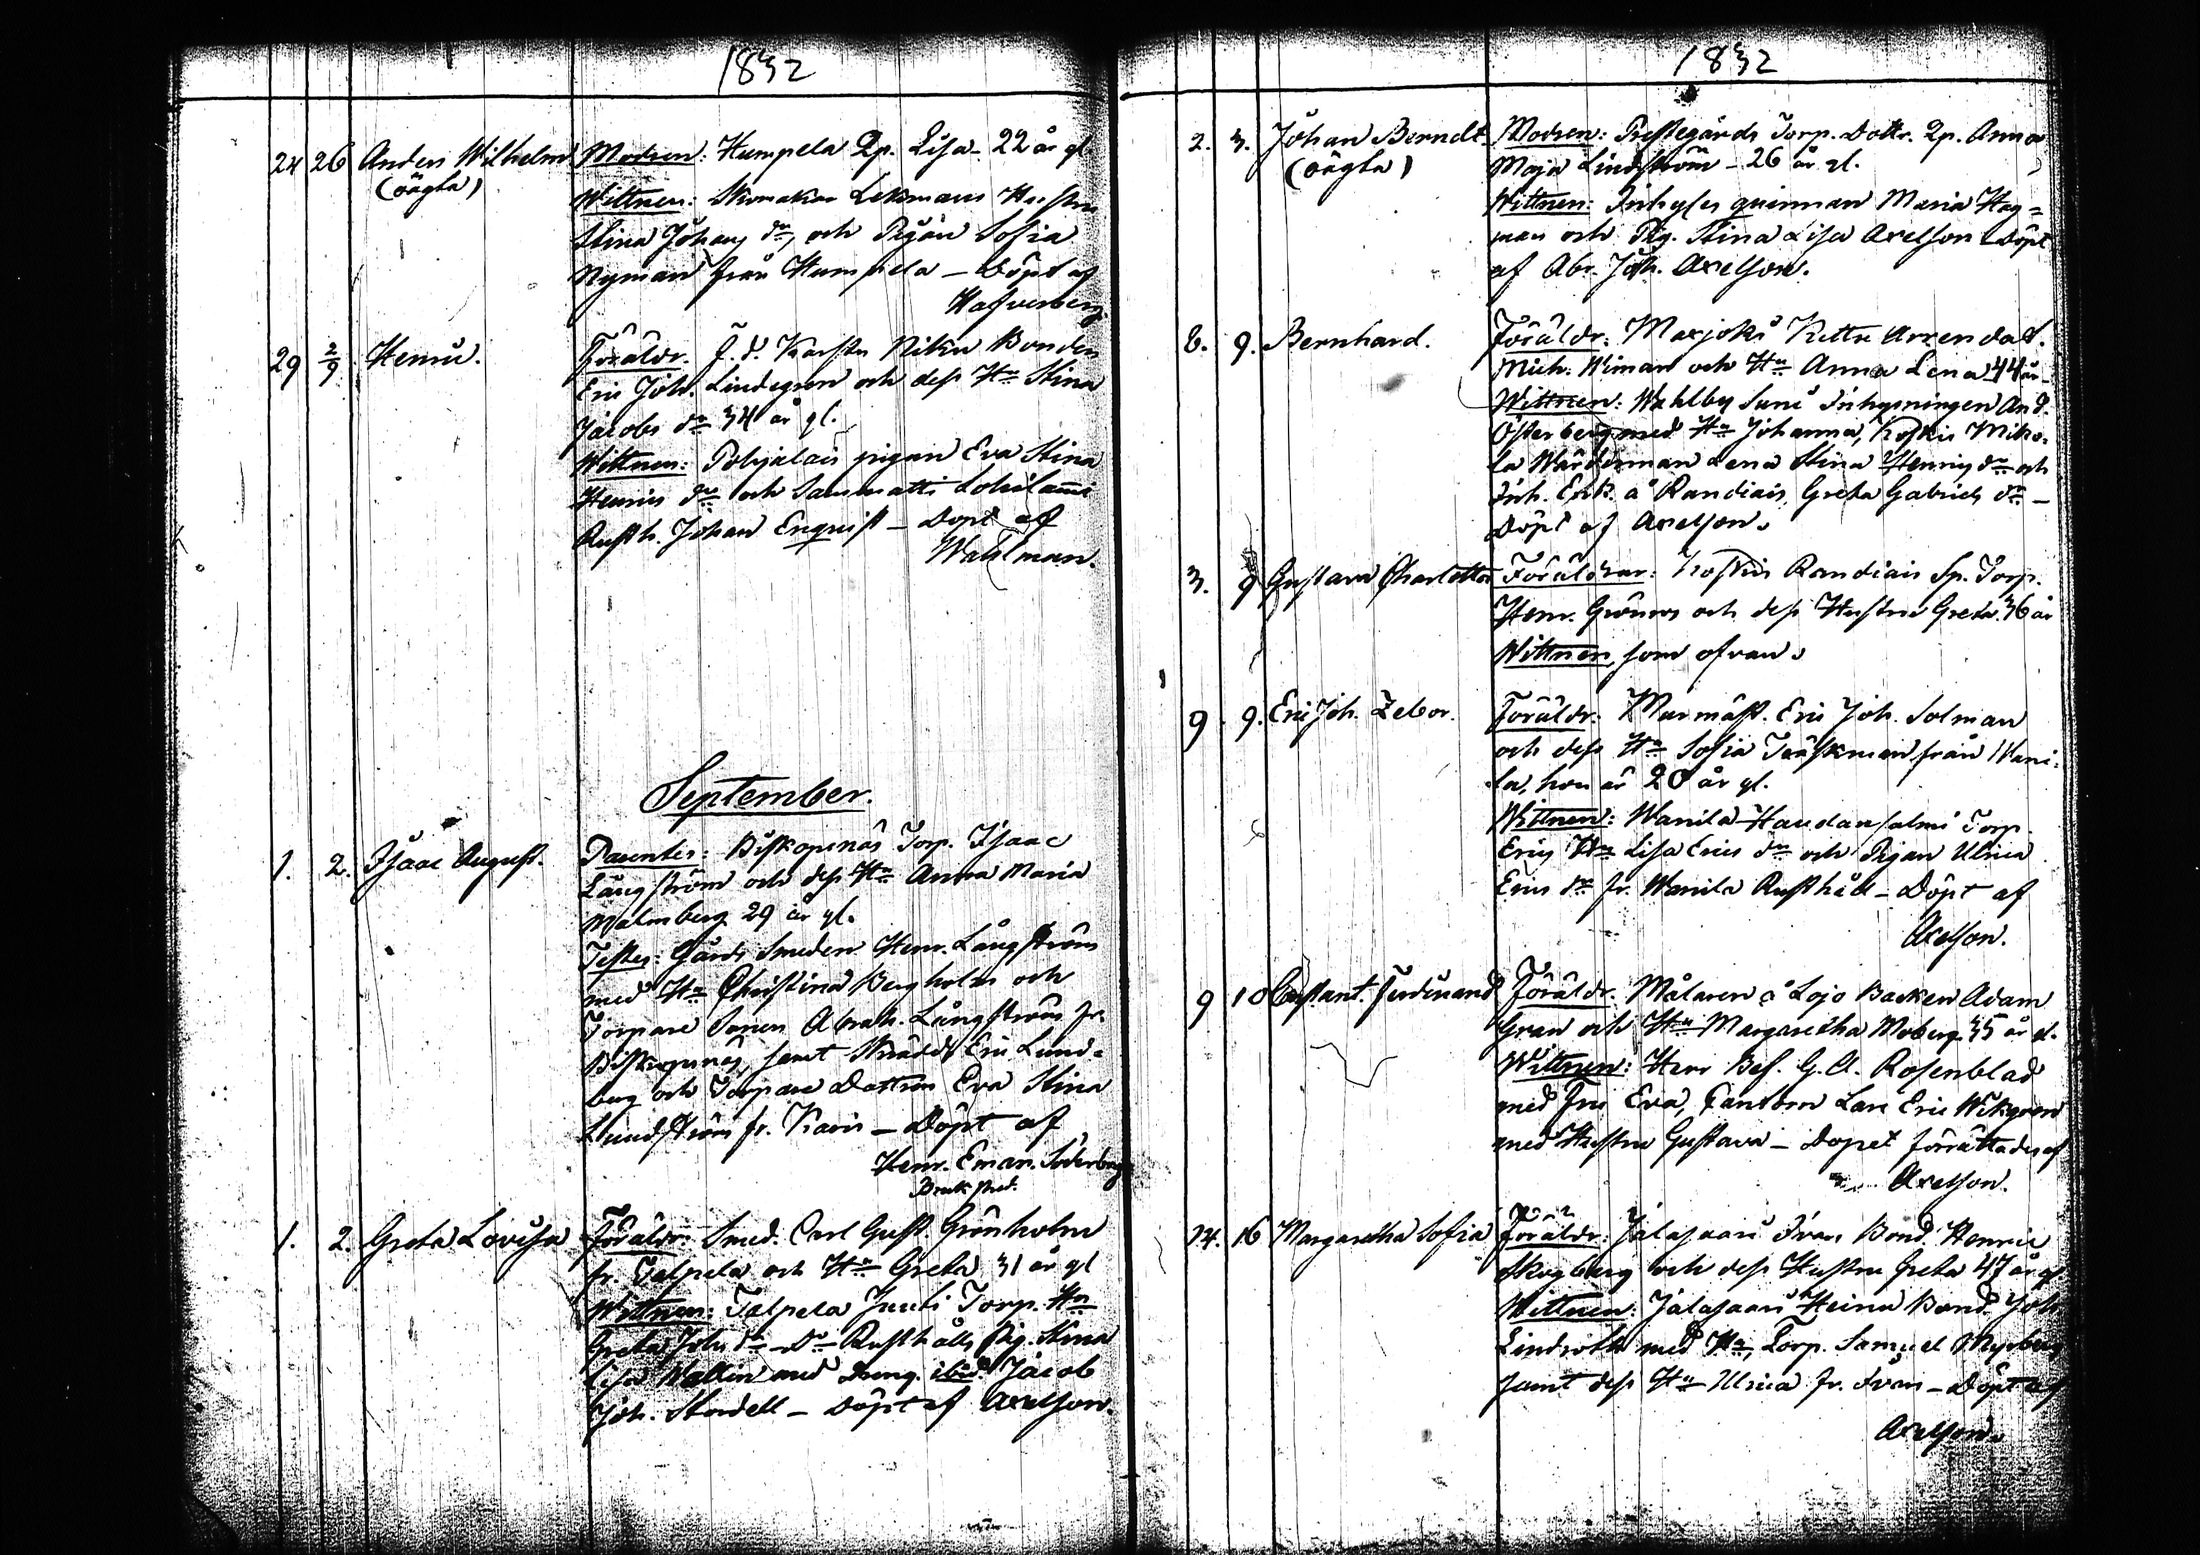 1832
24 26 Anders Wilhelm Modren: Humpela Qp. Lisa - 22 år gl.
(oägta)
Wittnen: Skomakar Lekmans Hustru
Stina Johans dr, och Pigan Sofia
Nyman från Humpela - Döpt af
Hafverberg.
29 2/9 Henric. Föräldr. F. d. Karstu Niku Bonden
Eric Joh. Lindegren och dess Hu Stina
Jacobs dr 34 år gl.
Wittnen: Pohjalais pigan Eva Stina
Henrics dr och Sammatti Lohilammi
Rusth. Johan Enqvist - Döpt af
Wahlman.
September.
1. 2. Isaac August. Parentes: Biskopsnäs Torp. Isaac
Långström och dess Hu Anna Maria
Malmberg 29 år gl.
Testes: Gårds Smeden Henr. Långström
med Hu Christina Bergholm och
Torpare Sonen Abrah. Långström fr.
Biskopsnäs, samt Skrädd. Eric Lund-
berg och Torpare Dottren Eva Stina
Lundström fr. Karis - Döpt af
Henr. Eman. Söderberg
Bruks pred.
1. 2. Greta Lovisa Föräldr: Smed. Carl Gust. Grönholm
fr. Talpela och Hu Greta 31 år gl
Wittnen: Talpela Juuti Torp. Hu
Greta Johs dr - Do Rusthålls Pig. Stina
Lisa Wallin med Dreng. ibid. Jacob
Joh. Stordell - Döpt af Axelson.
1832
2. 3. Johan Berndt Modren: Prestegårds Torp. Dottr. Qp. Anna
(oägta) Maja Lindström - 26 år gl.
Wittnen: Inhyses quinnan Maria Hag=
man och Pig. Stina Lisa Axelson Döpt
af Abr. Joh. Axelson.
8. 9. Bernhard. Föräldr: Maxjoki Arrendat.
Mich. Wiman och Hu Anna Lena 44 år
Wittnen: Wahlby Suni Inhysningen And.
Österberg med Hu Johanna, Koskis Miko-
la Wärdinnan Lena Stina Henrics dr och
Inh. Enk. å Randiais, Greta Gabriels dr -
Döpt af Axelson.
3. 9 Gustava Charlotta Föräldrar: Koskis Randiais Sp. Torp.
Henr. Grönros och dess Hustru Greta 36 år
Wittnen, som ofvan.
9 9. Eric Joh. Zebor. Föräldr: Murmäst. Eric Joh. Solman
och dess Hu Sofia Träskman från Wani-
la, hon är 20 år gl.
Wittnen: Wanila Haudansalmi Torp.
Erics Hu Lisa Erics dr och Pigan Ulrica
Erics dr fr. Wanila Rusthåll - Döpt af
Axelson.
9 10 Constant. Ferdinand Föräldr. Målaren å Lojo Backen Adam
Gran och Hu Margaretha Moberg 35 år gl.
Wittnen: Herr Bef. G. A. Rosenblad
med Fru Eva, Lars Eric Wikgren
med Hustru Gustava - Dopet förrättades af
Axelson.
14. 16 Margaretha Sofia Föräldr: Jalasaari Ivars Bond. Henric
Skogberg och dess Hustru Greta 47 år gl
Wittnen: Jalasaari Heina Bond. Joh
Lindroth med Hu, Torp. Samuel Myrberg
samt dess Hu Ulrica fr. Ivars - Döpt af
Axelson.